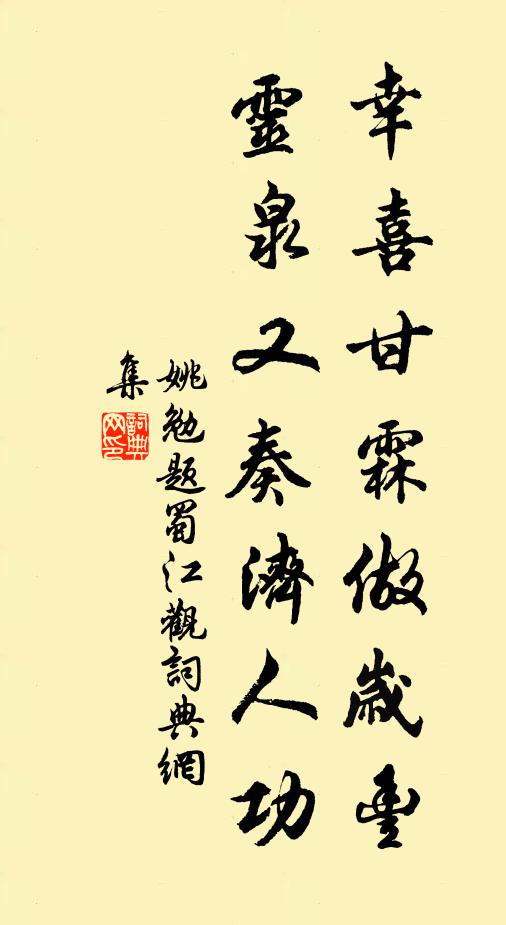 幸喜甘霖做歲豐
靈泉又奏濟人功
姚勉題蜀江觀詞典網
集
詞典網印